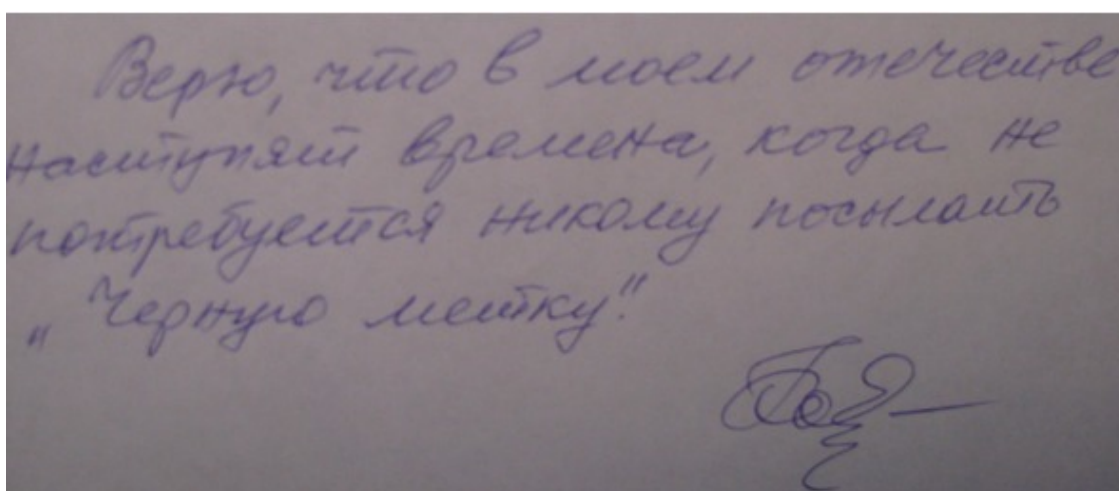 Верю, что в моем отечестве
наступят времена, когда не
потребуется никому посылать
„Черную метку".